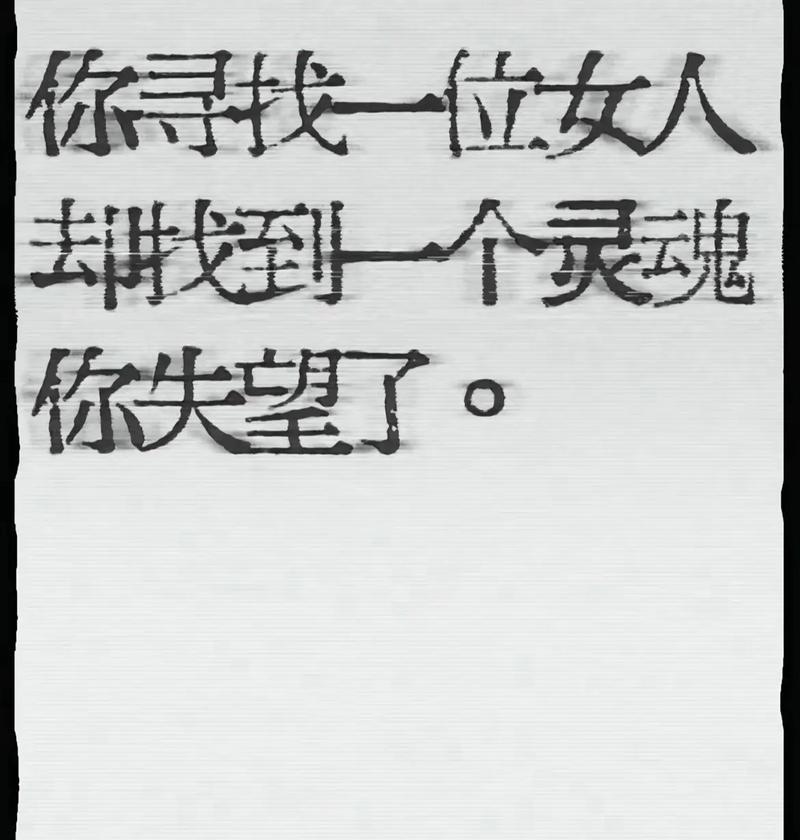 你寻找一位女人
却找到一个灵魂
你失望了。